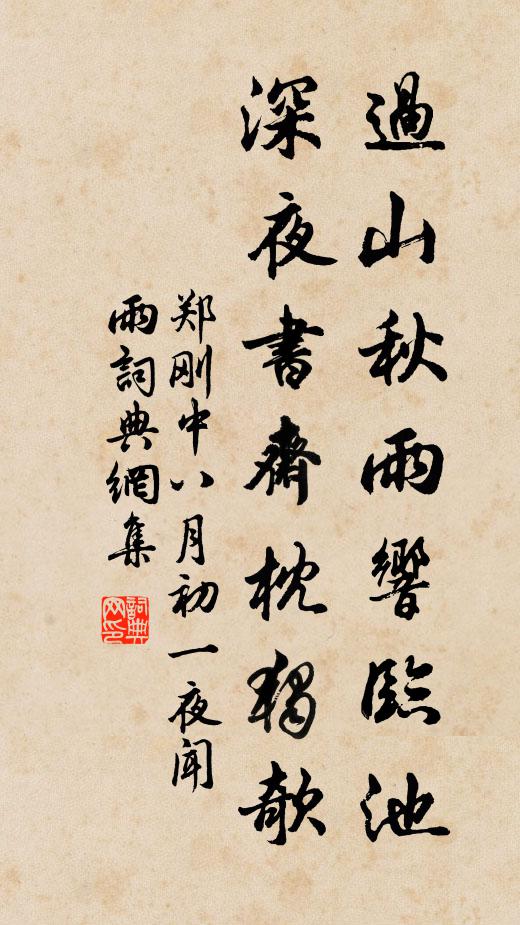 過山秋雨響臨池
深夜書齋枕獨欹
郑刚中八月初一夜闻
雨詞典網集
詞典网印